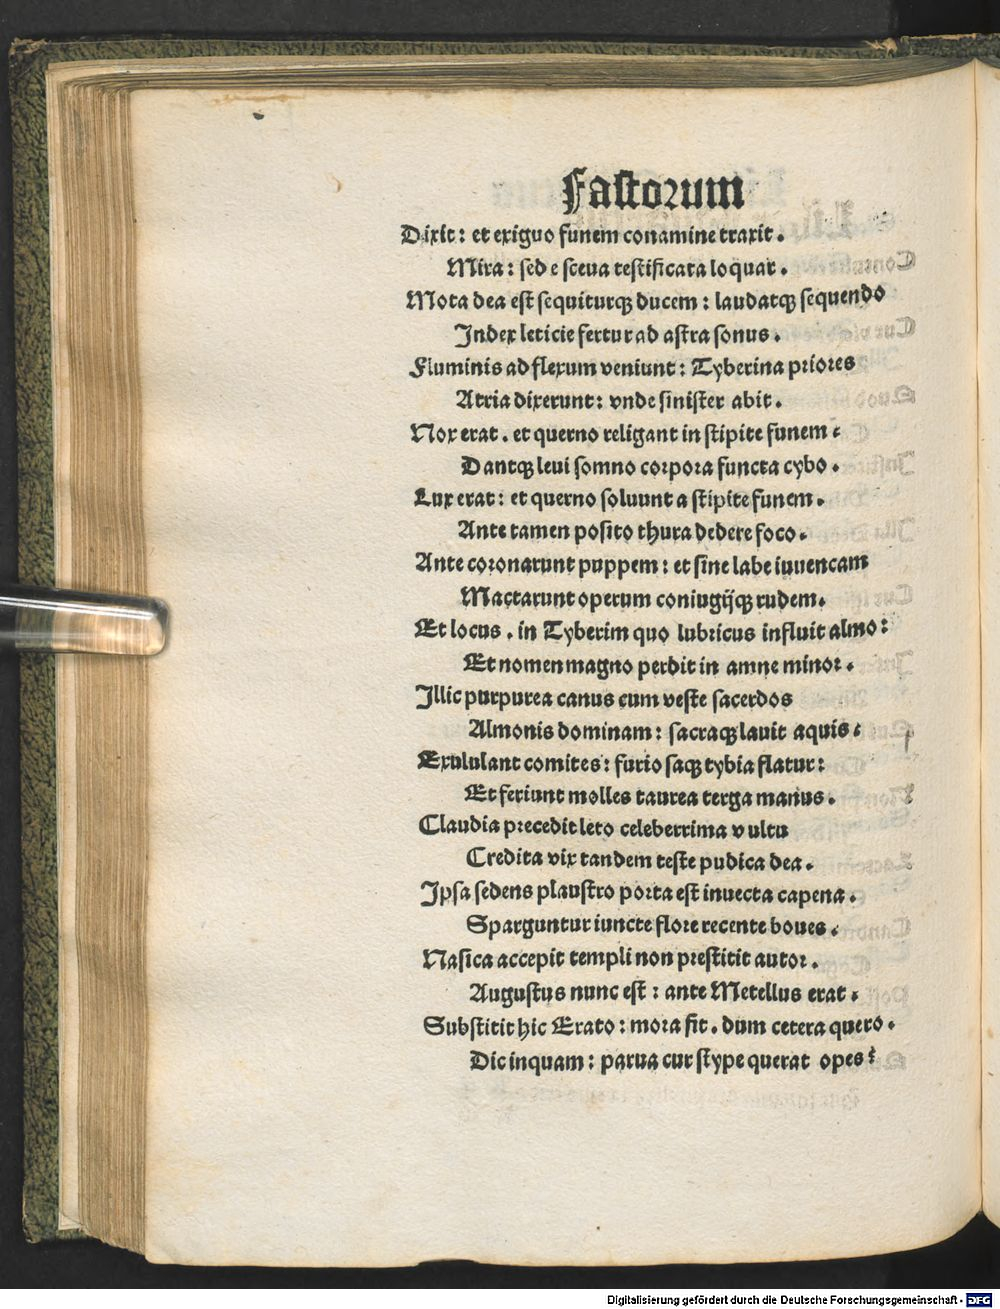 Fastorum
Dixit: et exiguo funem conamine traxit.
Mira: sed e sceua testificata loquar.
Mota dea est sequiturqꝫ ducem: laudatqꝫ sequendo
Index leticie fertur ad astra sonus.
Fluminis ad flexum veniunt: Tyberina priores
Atria dixerunt: vnde sinister abit.
Nox erat. et querno religant in stipite funem:
Dantqꝫ leui somno corpora functa cybo.
Lux erat: et querno soluunt a stipite funem.
Ante tamen posito thura dedere foco.
Ante coronarunt puppem: et sine labe iuuencam
Mactarunt operum coniugijqꝫ rudem.
Et locus. in Tyberim quo lubricus influit almo:
Et nomen magno perdit in amne minor.
Illic purpurea canus cum veste sacerdos
Almonis dominam: sacraqꝫ lauit aquis:
Exululant comites: furiosaqꝫ tybia flatur:
Et feriunt molles taurea terga manus.
Claudia precedit leto celeberrima vultu
Credita vix tandem teste pudica dea.
Ipsa sedens plaustro porta est inuecta capena.
Sparguntur iuncte flore recente boues.
Nasica accepit templi non prestitit autor.
Augustus nunc est: ante Metellus erat.
Substitit hic Erato: mora fit. dum cetera quero.
Dic inquam: parua cur stype querat opes?
Digitalisierung gefördert durch die Deutsche Forschungsgemeinschaft - DFG